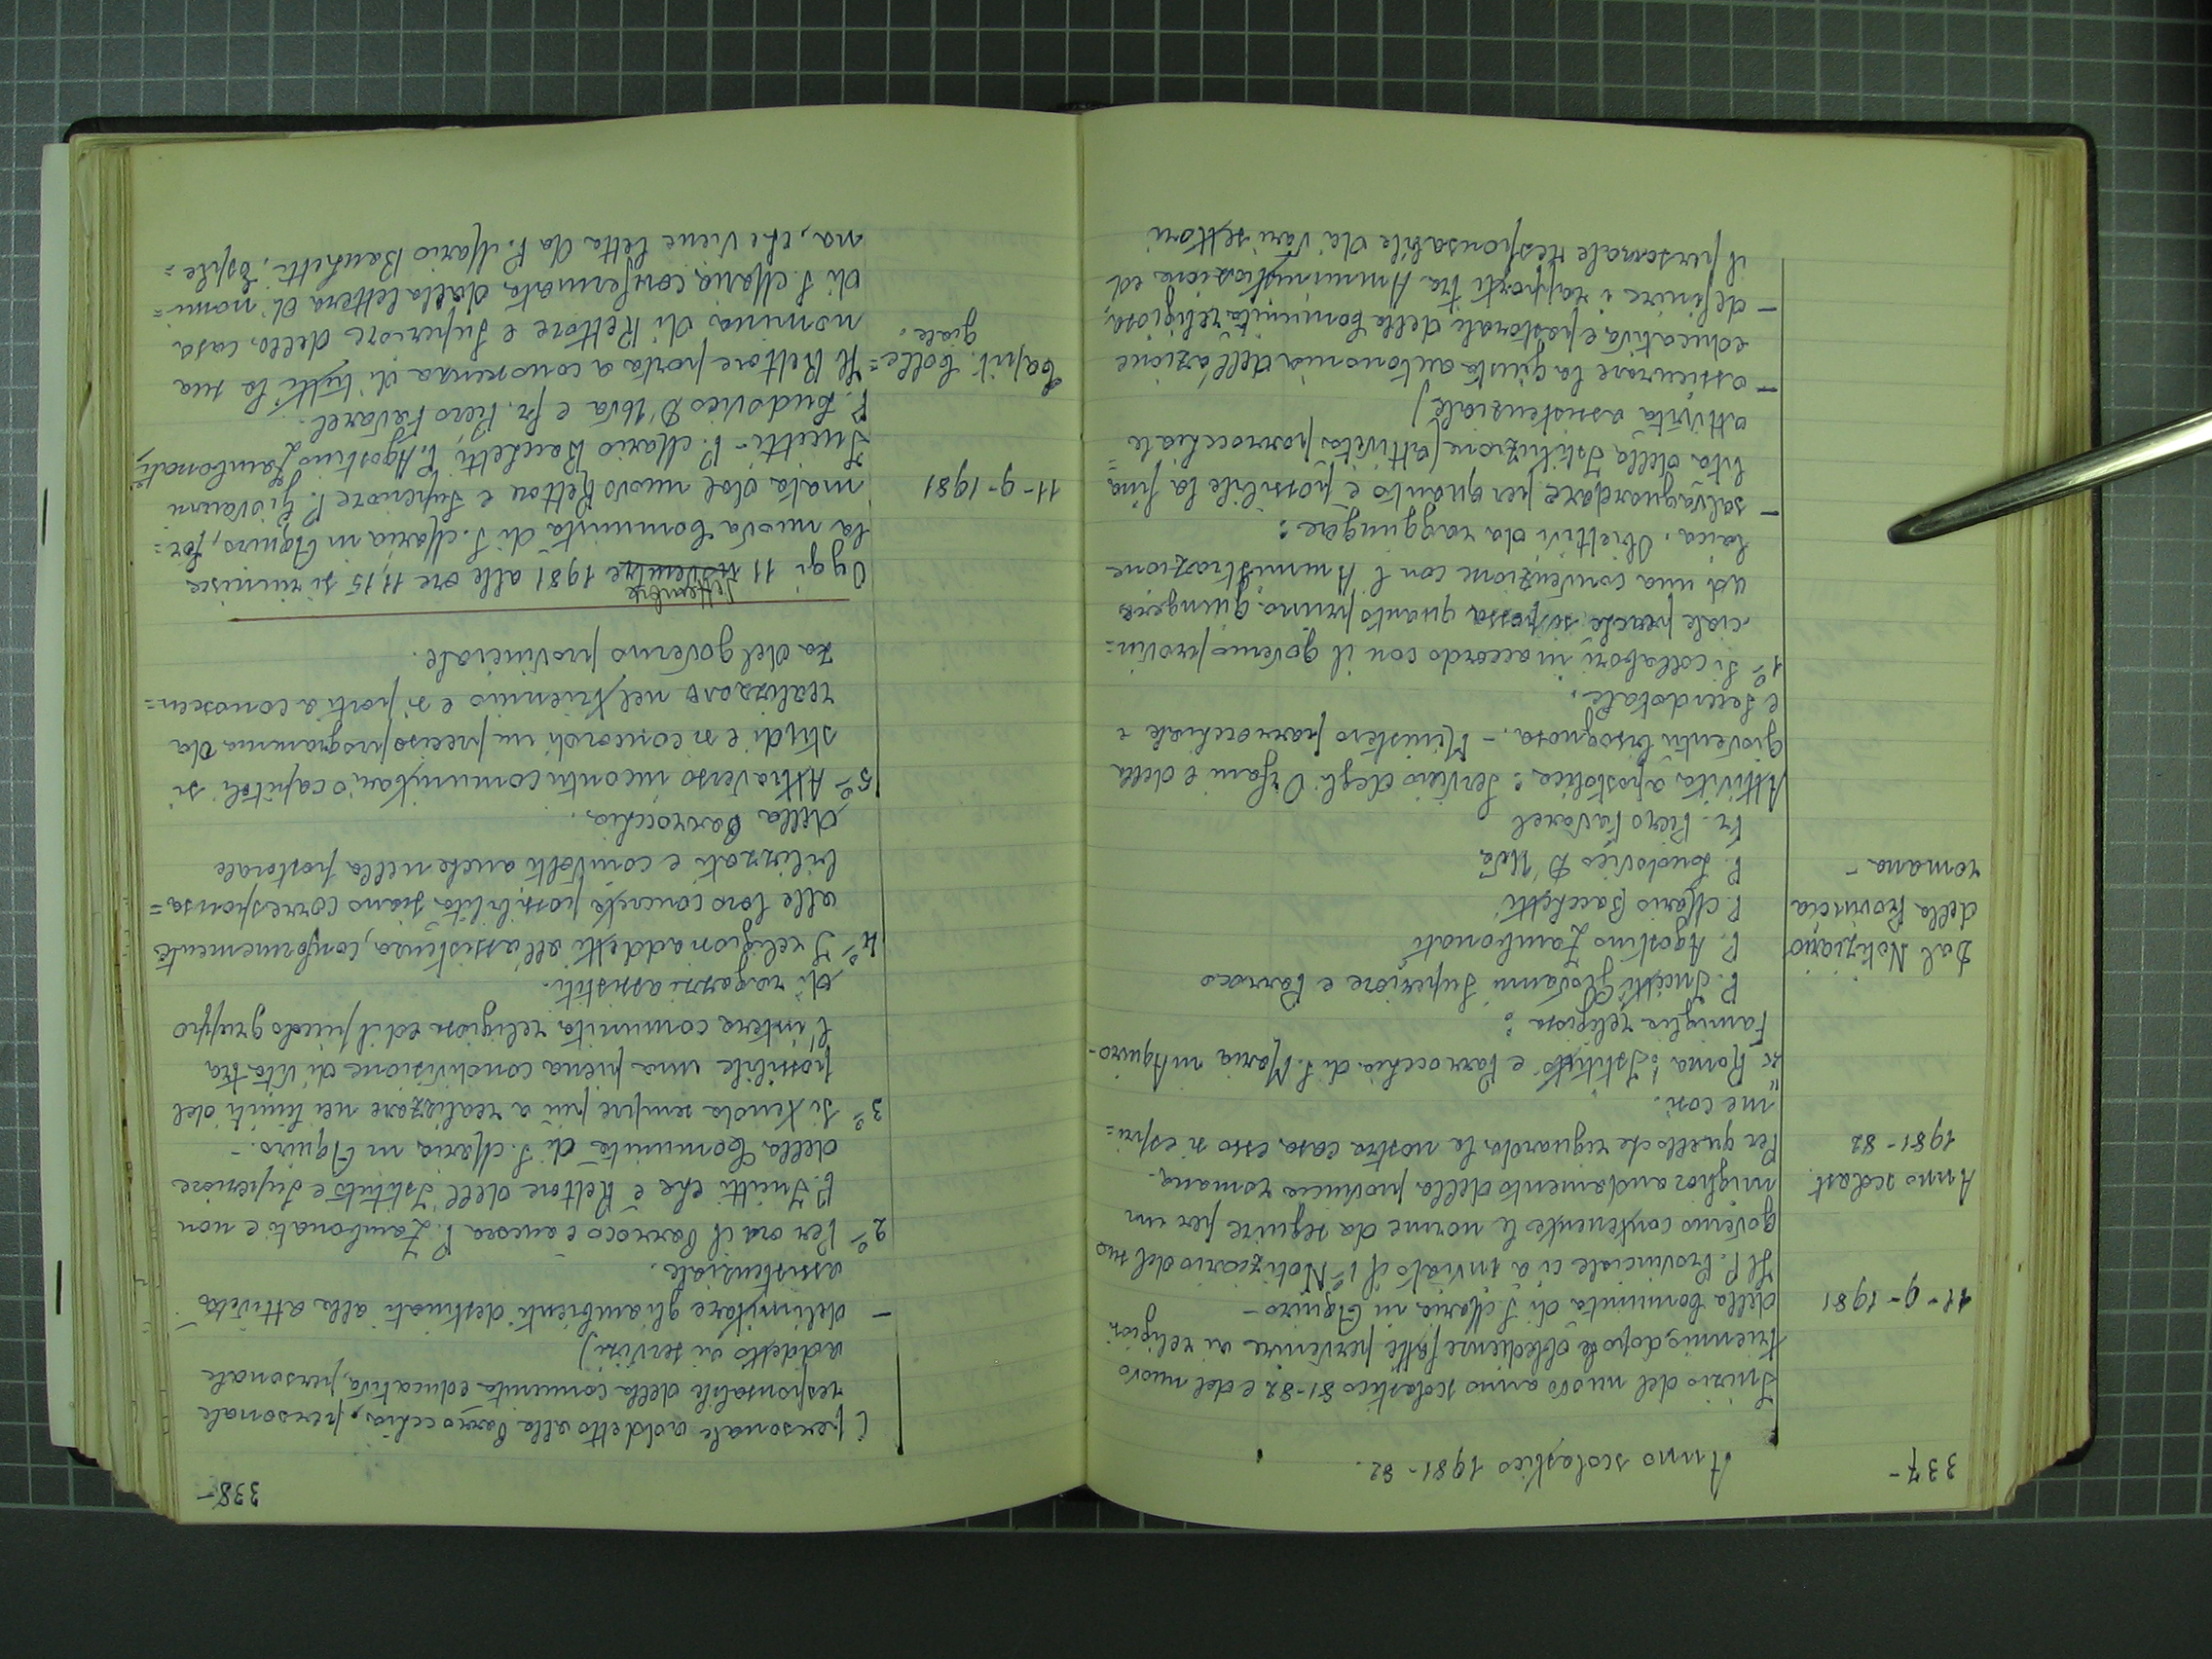 337-
Anno scolastico 1981-82.
Inizio del nuovo anno scolastico 81-82 e del nuovo
triennio, dopo le obbedienze fatte pervenire ai religiosi
11-9-1981
della Comunità di S. Maria in Aquiro-
Il P. Provinciale ci à inviato il 1° Notiziario del suo
governo contenente le norme da seguire per un
Anno scolast.
1981-82
miglior andamento della provincia romana.
Per quello che riguarda la nostra casa esso si espri=
me così.
"Roma: Istituto e Parrocchia di S. Maria in Aquiro-
Famiglia religiosa:
P. Incitti Giovanni Superiore e Parroco
Dal Notiziario
della Provincia
romana-
P. Agostino Zambonati
P. Mario Bacchetti
P. Ludovico D'Uva
Fr. Piero Favarel
Attività apostolica: Servizio degli Orfani e della
gioventù bisognosa. - Ministero parrocchiale e
e Sacerdotale.
1° Si collabori in accordo con il governo provin=
ciale perché si possa quanto prima giungere
ad una convenzione con l'Amministrazione
laica. Obiettivi da raggiungere:
- salvaguardare per quanto è possibile la fina=
lità della Istituzione (attività parrocchiale
attività assistenziale)
- assicurare la giusta autonomia dell'azione
educativa e pastorale della Comunità religiosa,
- definire i rapporti tra Amministrazione ed
il personale responsabile dei vari settori
338-
(personale addetto alla Parrocchia, personale
responsabile della comunità educativa, personale
addetto ai servizi)
- delimitare gli ambienti destinati alla attività
assistenziale.
2° Per ora il Parroco è ancora P. Zambonati e non
P. Incitti che è Rettore dell'Istituto e Superiore
della Comunità di S. Maria in Aquiro.-
3° Si tenda sempre più a realizzare nei limiti del
possibile una piena condivisione di vita tra
l'intera comunità religiosa ed il piccolo gruppo
di ragazzi assistiti.
4° I religiosi addetti all'assistenza, conformemente
alle loro concrete possibilità siano corresponsa=
bilizzati e coinvolti anche nella pastorale
della Parrocchia.
5° Attraverso incontri comunitari o capitoli si
studi e si concordi un preciso programma da
realizzare nel triennio e si porti a conoscen=
za del governo provinciale.
Settembre
Oggi 11 novembre 1981 alle ore 11,15 si riunisce
la nuova Comunità di S. Maria in Aquiro, for=
11-9-1981
mata dal nuovo Rettore e Superiore P. Giovanni
Incitti - P. Mario Bacchetti, P. Agostino Zambonati,
P. Ludovico D'Uva e fr. Piero Favarel.
Capit. Colle=
giale.
Il Rettore porta a conoscenza di tutti la sua
nomina di Rettore e Superiore della casa
di S. Maria, confermata dalla lettera di nomi=
na, che viene letta da P. Mario Bacchetti. Esple=